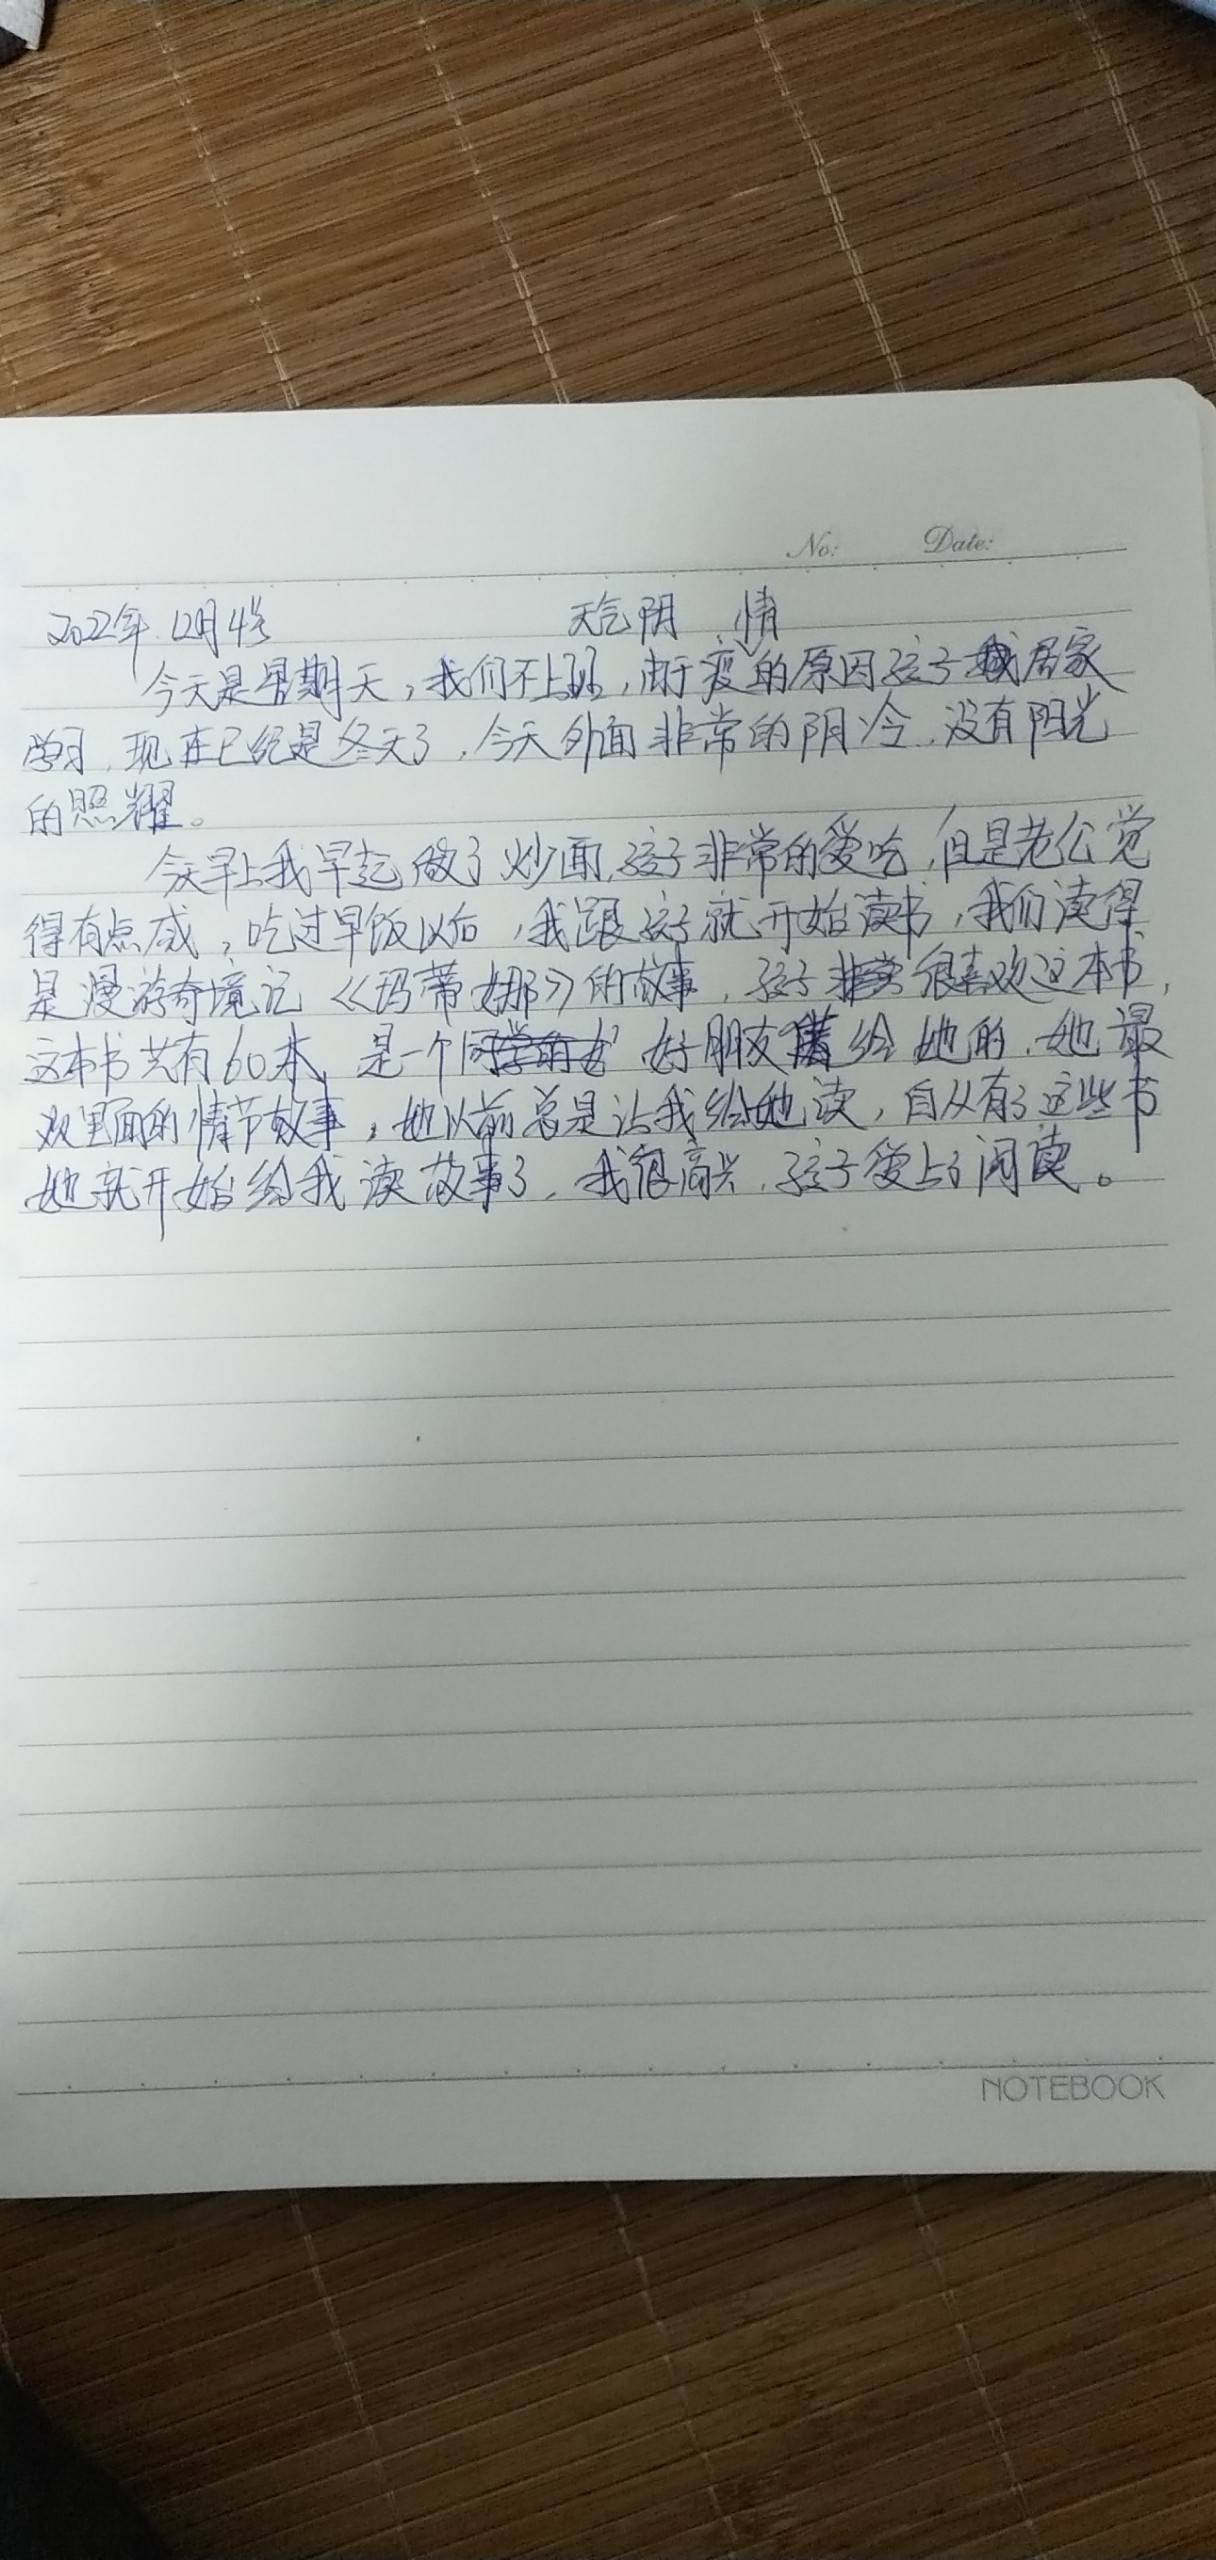 No: Date:
2022年.12月4号 天气阴
今天是星期天，我们不上班，由于疫情的原因孩子居家
学习，现在已经是冬天了，今天外面非常的阴冷，没有阳光
的照耀。
今天早上我早起做了炒面，孩子非常的爱吃，但是老公觉
得有点咸，吃过早饭以后，我跟孩子就开始读书，我们读得
是漫游奇境记《玛蒂娜》的故事，孩子很喜欢这本书，
这本书共有60本，是一个好朋友借给她的，她最
欢里面的情节故事，她以前总是让我给她读，自从有了这些书
她就开始给我读故事了，我很高兴，孩子爱上了阅读。
NOTEBOOK